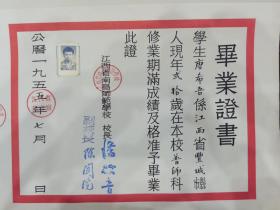 畢業證書
學生唐希吾係江西省豐城縣
人現年弍拾歲在本校普師科
修業期滿成績及格准予畢業
此證
江西省南昌師範學校 校長
副校長
公曆一九五五年七月 日